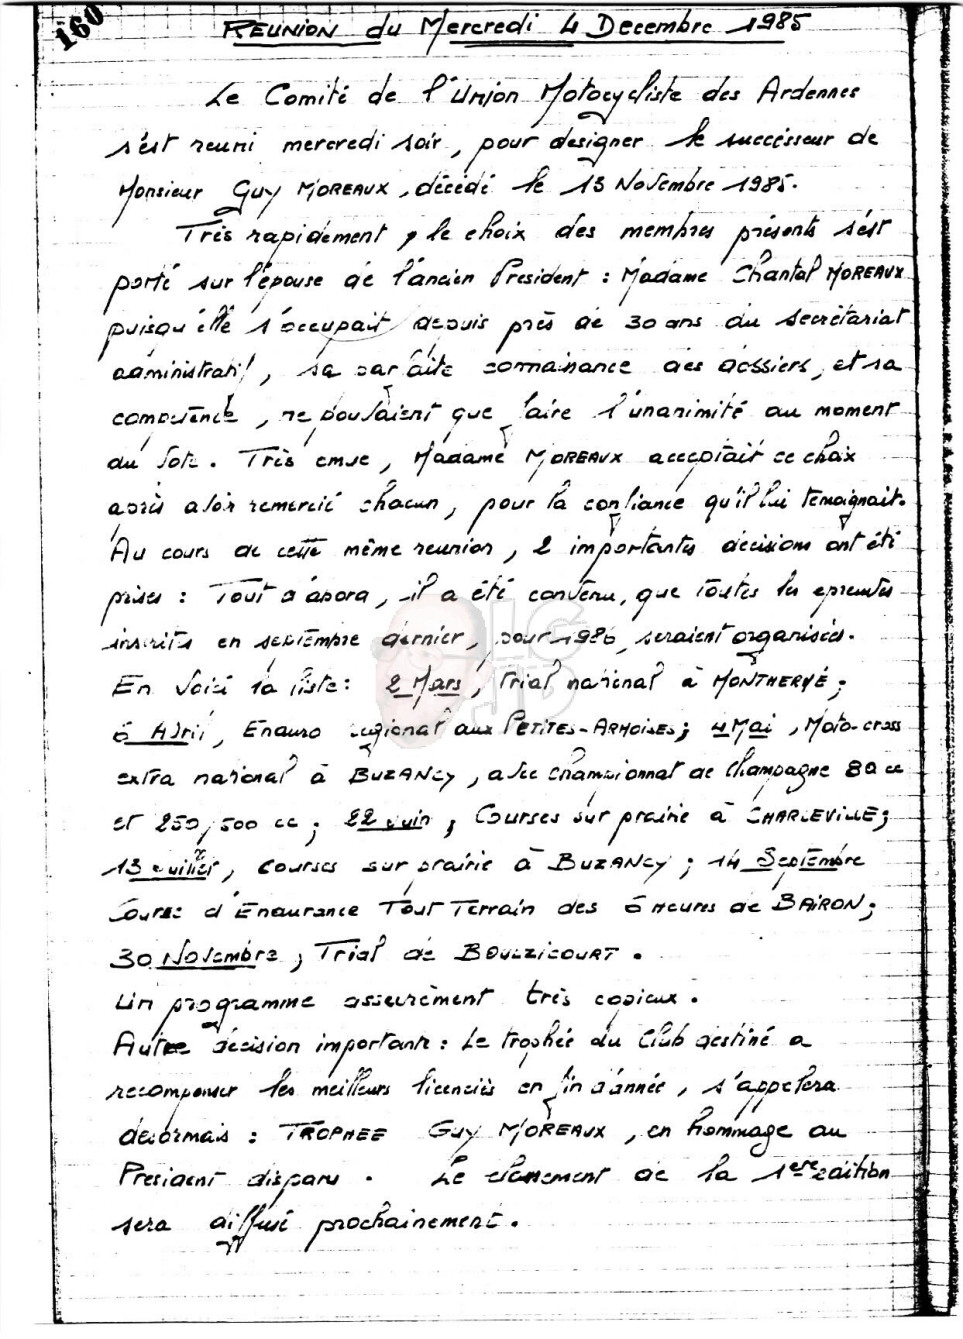 160
REUNION du Mercredi 4 Decembre 1985
Le Comité de l'Union Motocycliste des Ardennes
s'est reuni mercredi soir, pour designer le successeur de
Monsieur Guy MOREAUX, décédé le 13 Novembre 1985.
Très rapidement, le choix des membres présents s'est
porté sur l'épouse de l'ancien President : Madame Chantal MOREAUX
puisqu'elle s'occupait depuis près de 30 ans du secrétariat
administratif, sa parfaite connaissance des dossiers, et sa
competence, ne pouvaient que faire l'unanimité au moment
du vote. Très emue, Madame MOREAUX acceptait ce choix
après avoir remercié chacun, pour la confiance qu'il lui temoignait.
Au cours de cette même reunion, 2 importantes decisions ont été
prises : Tout d'abord, il a été convenu, que toutes les epreuves
inscrites en septembre dernier, pour 1986, seraient organisées.
En voici la liste : 2 Mars, Trial national à MONTHERMÉ ;
6 Avril, Enduro regional aux PETITES-ARMOISES ; 4 Mai, Moto-cross
extra national à BUZANCY, avec championnat de Champagne 80 cc
et 250/500 cc ; 22 Juin, Courses sur prairie à CHARLEVILLE ;
13 Juillet, courses sur prairie à BUZANCY ; 14 Septembre
Course d'Endurance Tout Terrain des 6 Heures de BAIRON ;
30 Novembre, Trial de BOULZICOURT.
Un programme assurément très copieux.
Autre décision importante : Le trophée du Club destiné a
recompenser les meilleurs licenciés en fin d'année, s'appelera
desormais : TROPHEE Guy MOREAUX, en hommage au
President disparu. Le classement de la 1ere edition
sera diffusé prochainement.